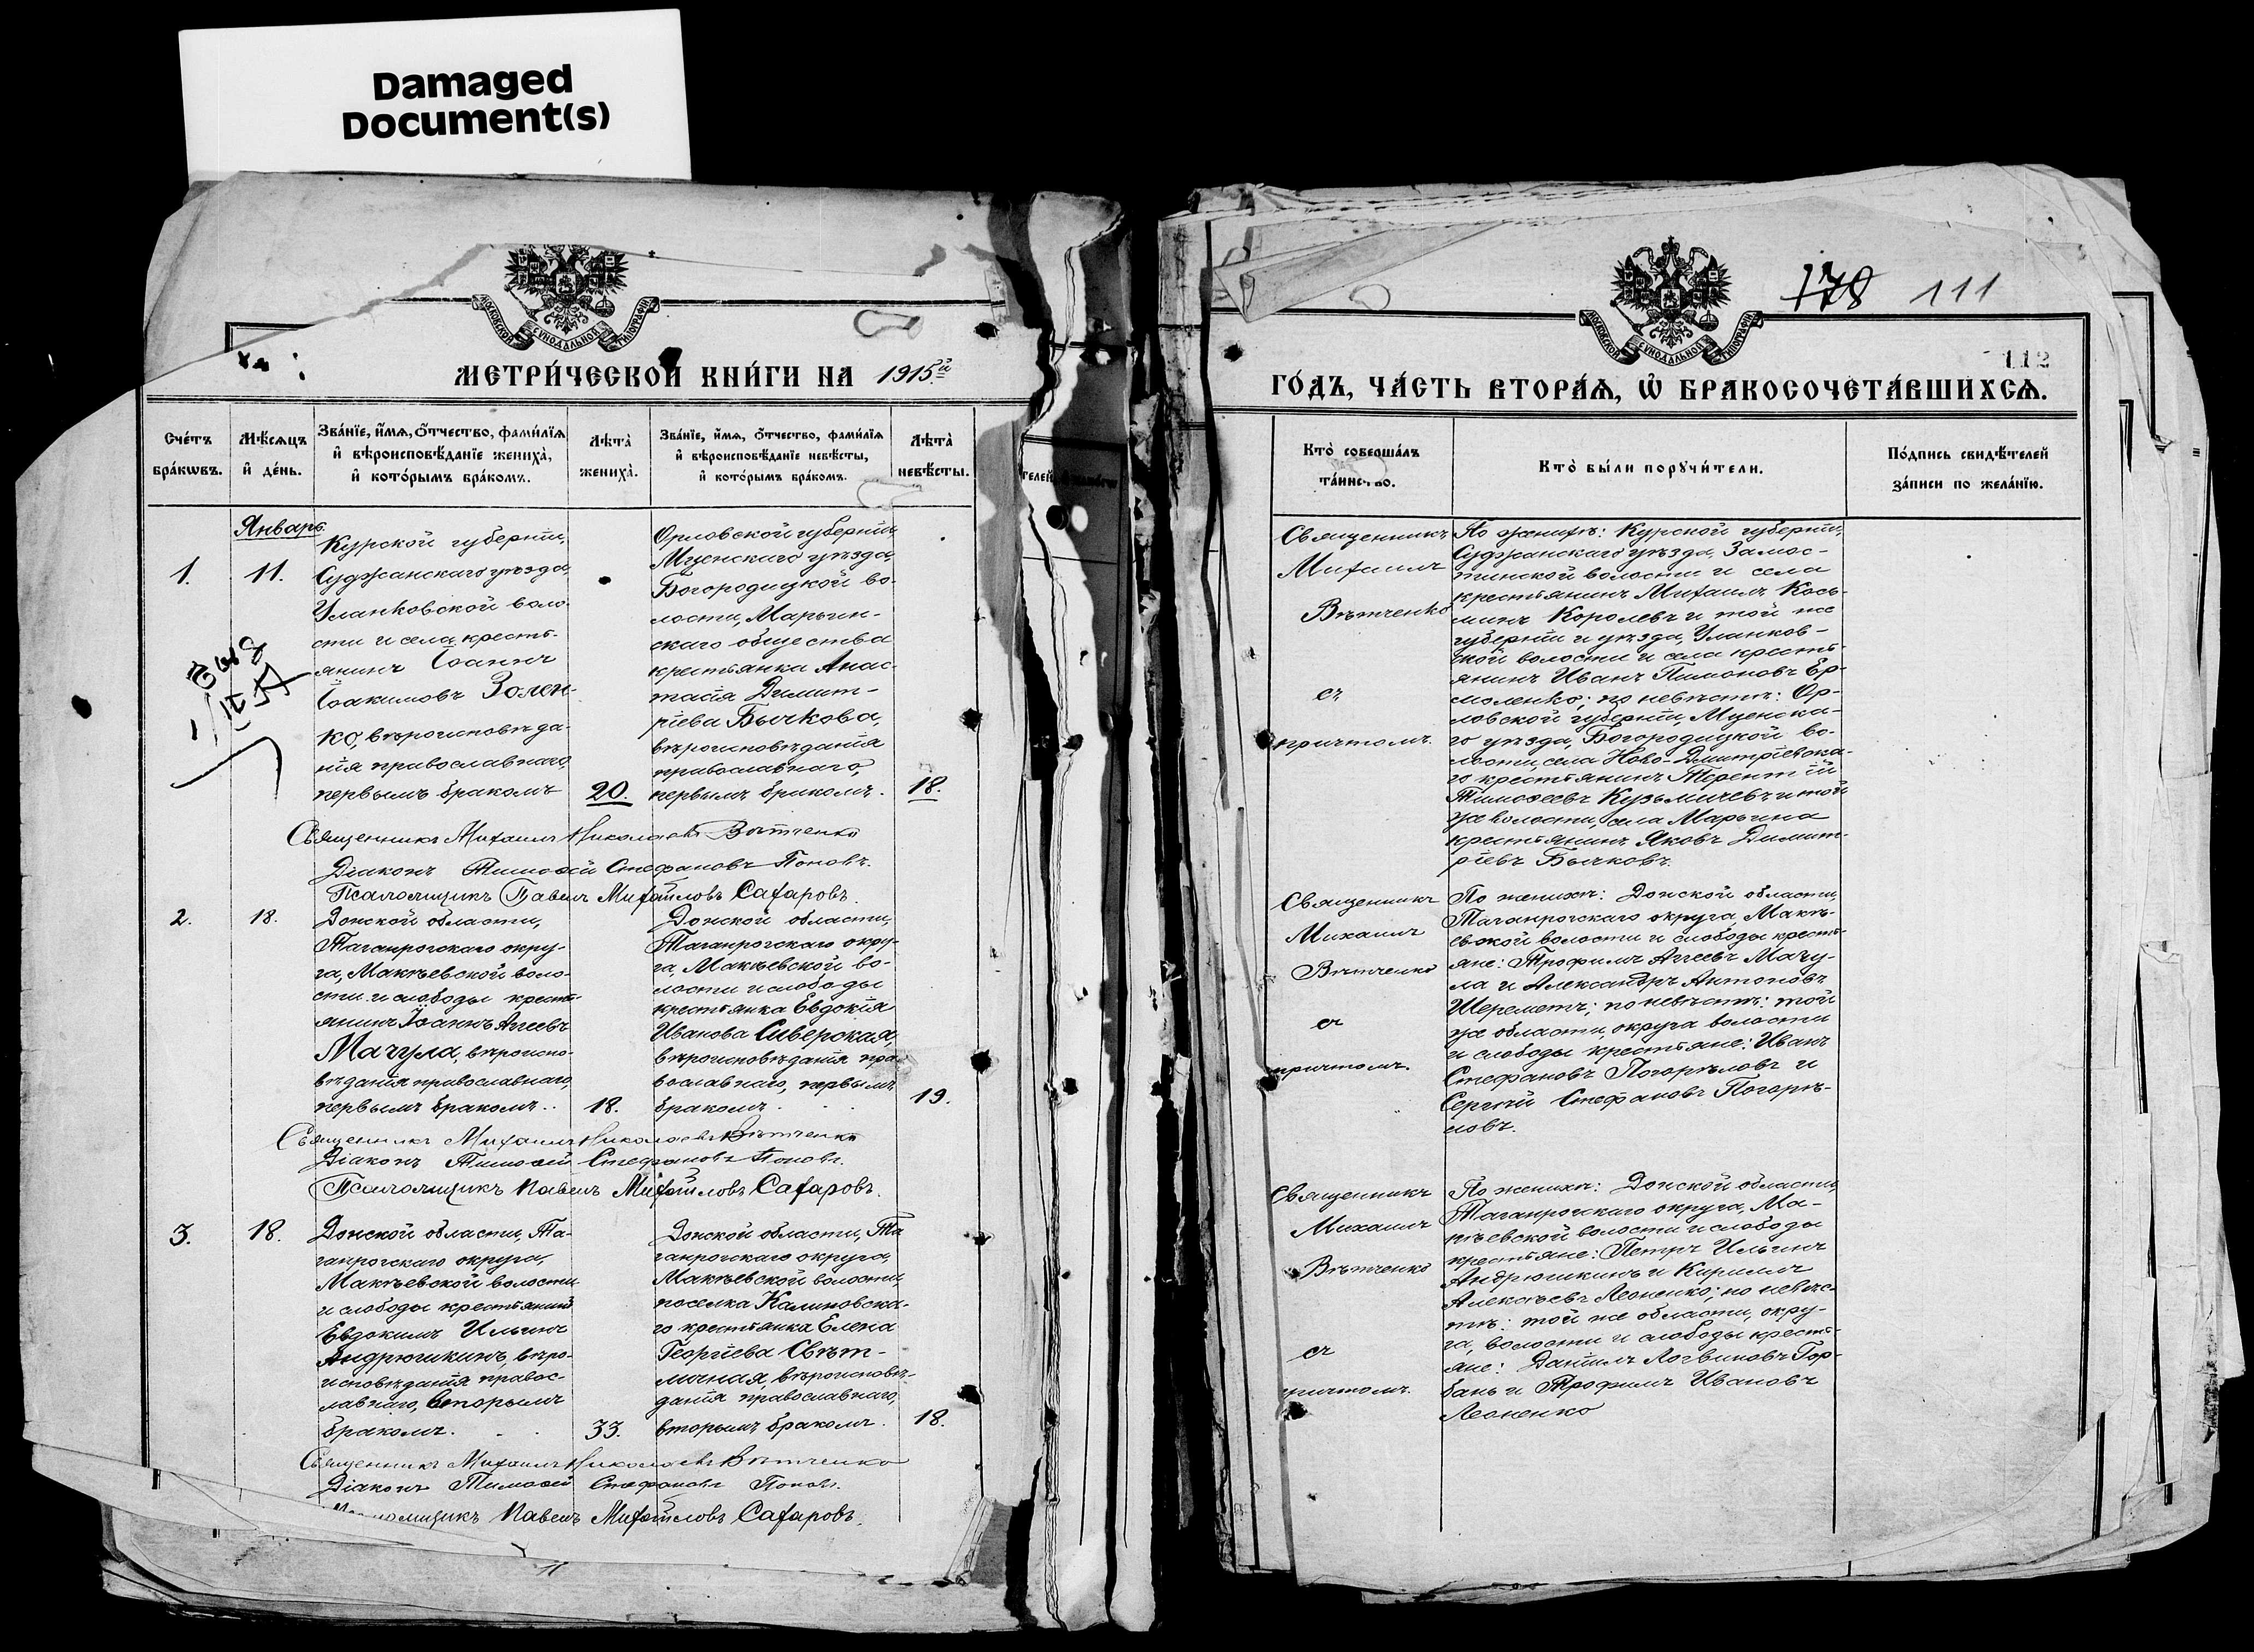 Damaged
Document(s)
МОСКОВСКОЙ СѴНОДАЛЬНОЙ ТИПОГРАФІИ
МЕТРИ́ЧЕСКОЙ КНИ́ГИ НА 1915й
Сче́тъ бра́кѡвъ.
Мѣ́сѧцъ и҆ де́нь.
Зва́нїе, и҆́мѧ, ѻ҆́тчество, фами́лїѧ
и҆ вѣроисповѣ́данїе жениха̀,
и҆ кото́рымъ бра́комъ.
Лѣта̀ жениха̀.
Зва́нїе, и҆́мѧ, ѻ҆́тчество, фами́лїѧ
и҆ вѣроисповѣ́данїе невѣ́сты,
и҆ кото́рымъ бра́комъ.
Лѣта̀ невѣ́сты.
Январь
1.
11.
Курской губерніи,
Суджанскаго уѣзда,
Уланковской воло-
сти и села, кресть-
янинъ Іоаннъ
Іоакимовъ Золен-
ко, вѣроисповѣда-
нія православнаго,
первымъ бракомъ
20.
Орловской губерніи,
Мценскаго уѣзда,
Богородицкой во-
лости, Марьин-
скаго общества
крестьянка Анас-
тасія Димит-
ріева Бычкова,
вѣроисповѣданія
православнаго,
первымъ бракомъ.
18.
Священникъ Михаилъ Николаевъ Вѣтченко
Діаконъ Тимоѳей Стефановъ Поповъ.
Псаломщикъ Павелъ Михайловъ Сафаровъ.
2.
18.
Донской области,
Таганрогскаго окру-
га, Макѣевской воло-
сти и слободы кресть-
янинъ Іоаннъ Агеевъ
Мачула, вѣроиспо-
вѣданія православнаго,
первымъ бракомъ..
18.
Донской области,
Таганрогскаго окру-
га, Макѣевской во-
лости и слободы
крестьянка Евдокія
Иванова Сиверская,
вѣроисповѣданія пра-
вославнаго, первымъ
бракомъ
19.
Священникъ Михаилъ Николаевъ Вѣтченко
Діаконъ Тимоѳей Стефановъ Поповъ.
Псаломщикъ Павелъ Михайловъ Сафаровъ.
3.
18.
Донской области, Та-
ганрогскаго округа,
Макѣевской волости
и слободы крестьянинъ
Евдокимъ Ильинъ
Андрюшкинъ, вѣро-
исповѣданія правос-
лавнаго, вторымъ
бракомъ.
33.
Донской области, Та
ганрогскаго округа,
Макѣевской волости,
поселка Калиновска-
го крестьянка Елена
Георгіева Свѣт-
личная, вѣроисповѣ-
данія православнаго,
вторымъ бракомъ.
18.
Священникъ Михаилъ Николаевъ Вѣтченко
Діаконъ Тимоѳей Стефановъ Поповъ.
Псаломщикъ Павелъ Михайловъ Сафаровъ.
телей
МОСКОВСКОЙ СѴНОДАЛЬНОЙ ТИПОГРАФІИ
178 111
112
ГО́ДЪ, ЧА́СТЬ ВТОРА́Ѧ, Ѡ҆ БРАКОСОЧЕТА́ВШИХСѦ.
Кто̀ соверша́лъ
та́инство.
Кто̀ бы́ли порꙋчи́тели.
По́дпись свидѣ́телей
за́писи по жела́нїю.
Священникъ
Михаилъ
Вѣтченко
съ
причтомъ.
По женихѣ: Курской губерніи,
Суджанскаго уѣзда, Замос-
тинской волости и села
крестьянинъ Михаилъ Кось-
минъ Королевъ и той же
губерніи и уѣзда, Уланков-
ской волости и села кресть-
янинъ Иванъ Пимоновъ Ер-
моленко; по невѣстѣ: Ор-
ловской губерніи, Мценска-
го уѣзда, Богородицкой во-
лости, села Ново-Дмитріевска-
го крестьянинъ Терентій
Тимоѳеевъ Кузьмичевъ и той
же волости, села Марьина
крестьянинъ Яковъ Димит-
ріевъ Бычковъ.
Священникъ
Михаилъ
Вѣтченко
съ
причтомъ.
По женихѣ: Донской области,
Таганрогскаго округа, Макѣ-
евской волости и слободы кресть-
яне: Трофимъ Агеевъ Мачу-
ла и Александръ Антоновъ
Шереметъ; по невѣстѣ: той
же области, округа волости
и слободы крестьяне: Иванъ
Стефановъ Погорѣловъ и
Сергѣй Стефановъ Погорѣ-
ловъ.
Священникъ
Михаилъ
Вѣтченко
съ
причтомъ.
По женихѣ: Донской области,
Таганрогскаго округа, Ма-
кѣевской волости и слободы
крестьяне: Петръ Ильинъ
Андрюшкинъ и Кириллъ
Алексѣевъ Леоненко; по невѣс-
тѣ: той же области, окру-
га, волости и слободы кресть-
яне: Даніилъ Логвиновъ Гор-
бань и Трофимъ Ивановъ
Леоненко